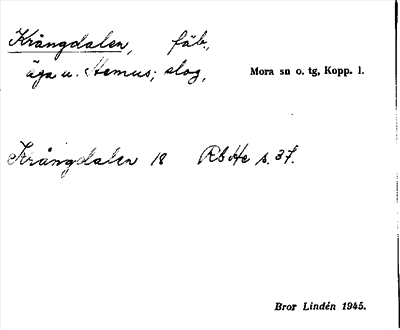 Krångdalen, fäb.,
äga u. Hemus; slog,
Mora sn o. tg, Kopp. l.
Krångdalen 18 RbHe s. 37.
Bror Lindén 1945.